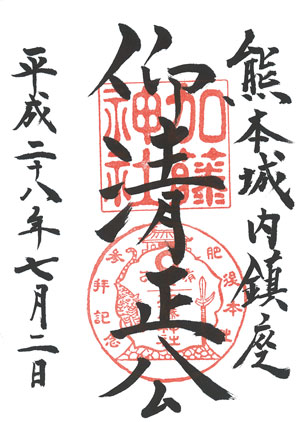 熊本城内鎮座
仰清正公
平成二十八年七月二日
加藤
神社
参拝記念